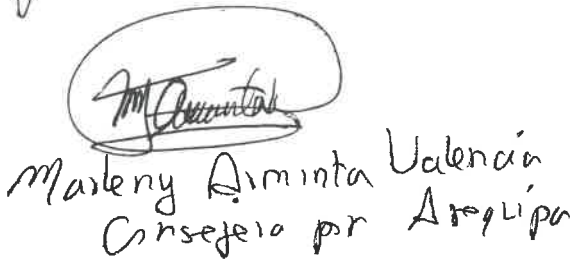 Marleny Arminta Valencia
Consejera por Arequipa